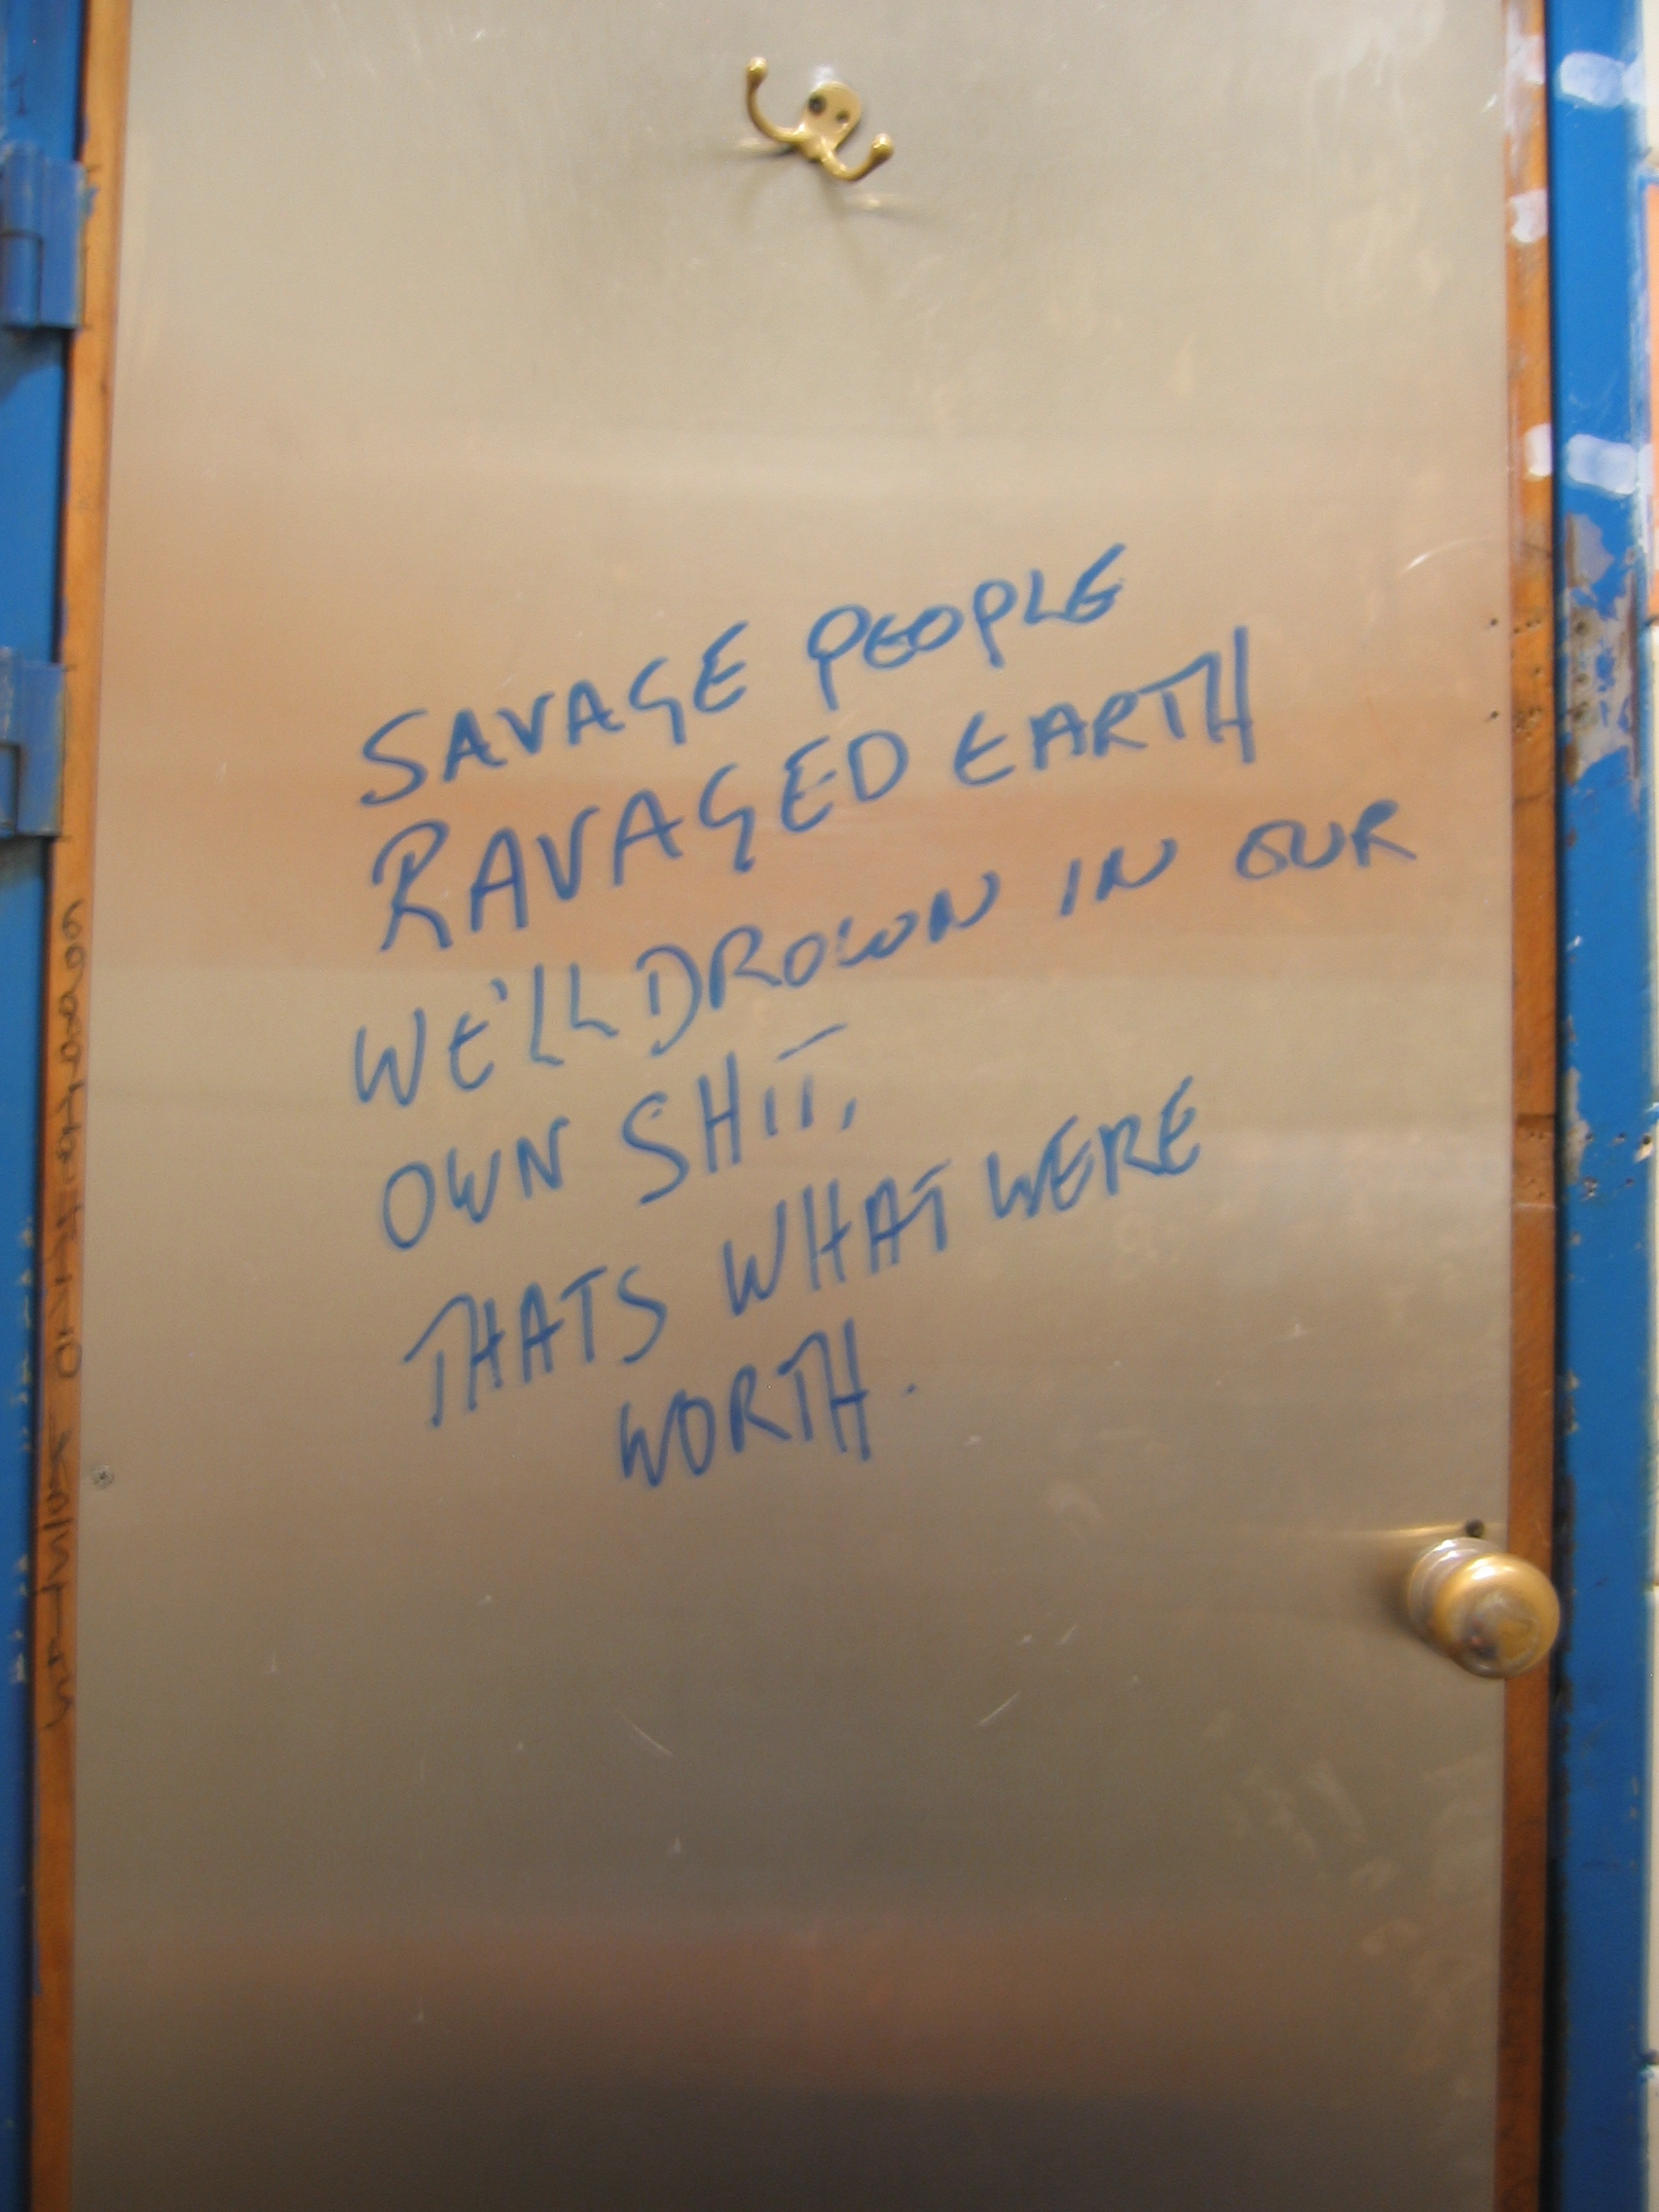 SAVAGE PEOPLE
RAVAGED EARTH
WE'LL DROWN IN OUR
OWN SHIT,
THATS WHAT WERE
WORTH.